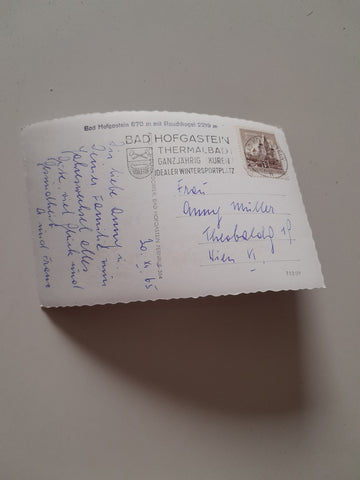 Bad Hofgastein 870 m mit Rauchkogel 2208 m
BAD HOFGASTEIN
THERMALBAD
GANZJÄHRIG KUREN!
IDEALER WINTERSPORTPLATZ
Dir liebe Anny u.
Deiner Familie zum
Jahreswechsel alles
Gute, viel Glück und
Gesundheit
20. XI. 65
Frau
Anny Müller
Theobaldg 19
Wien VI.